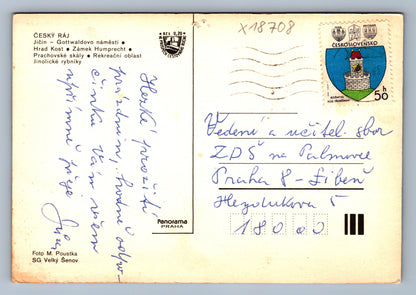 ČESKÝ RÁJ
Jičín - Gottwaldovo náměstí •
Hrad Kost • Zámek Humprecht •
Prachovské skály • Rekreační oblast
Jinolické rybníky
X18708
ČESKOSLOVENSKO
50 h
Hezké prožití
prázdnin, hodně odpo-
činku Vám všem
upřímně přeje
Vedení a učitel. sbor
ZDŠ na Palmovce
Praha 8 - Libeň
Hejdukova 5
18000
Panorama
PRAHA
Foto M. Poustka
SG Velký Šenov